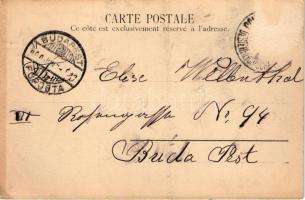 CARTE POSTALE
Ce côté est exclusivement réservé à l'adresse.
BUDAPEST
FŐPOSTA
Elise
VII Rosengasse No. 94
Buda Pest